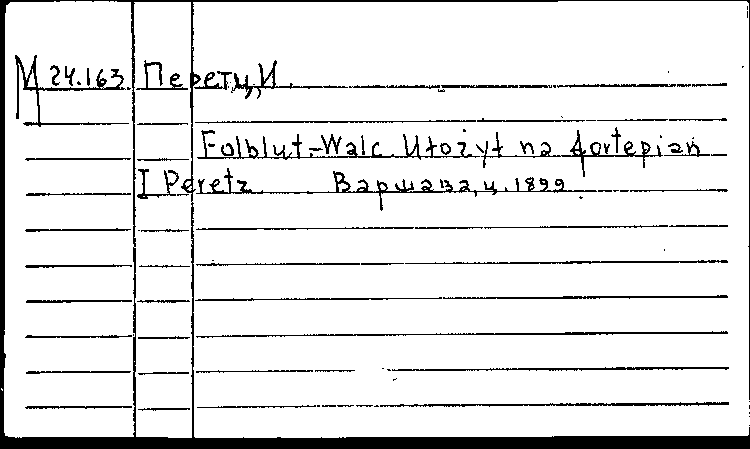 М 24.163 Перетц, И.
Folblut-Walc. Ułożył na fortepian
I Peretz Варшава, ц. 1899.